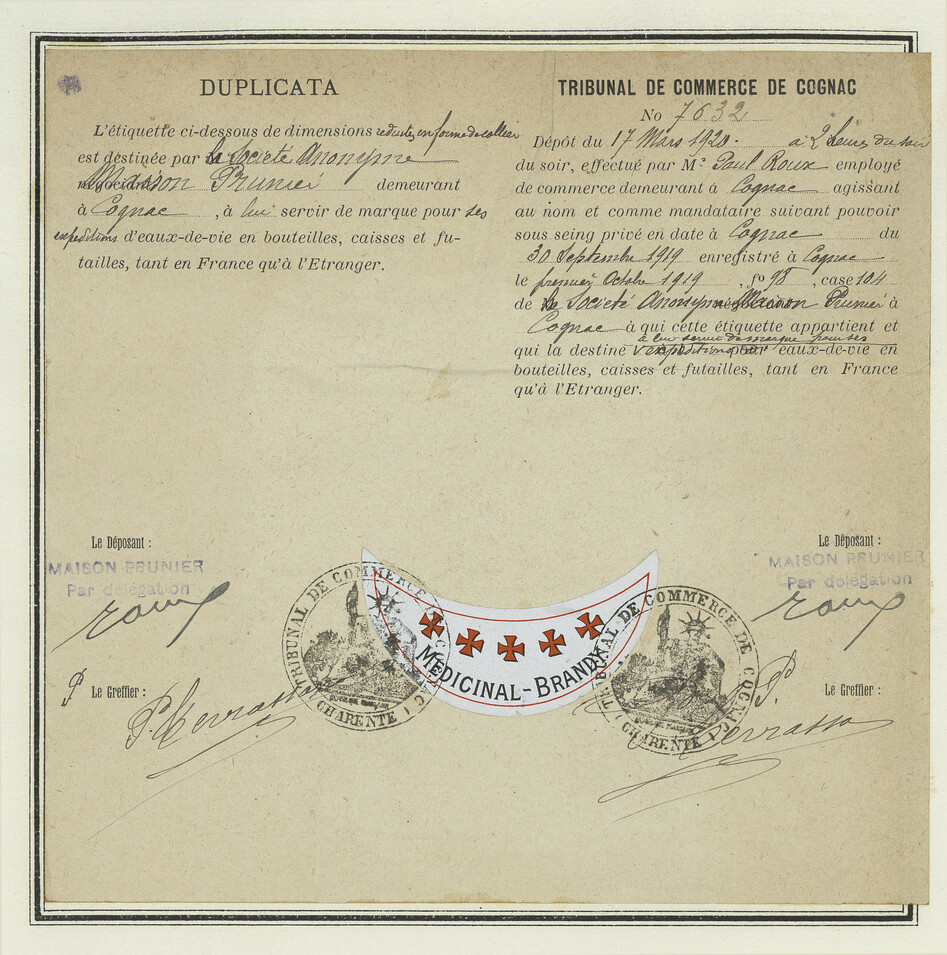 DUPLICATA
L'étiquette ci-dessous de dimensions réduites, en forme de collier
est destinée par la Société Anonyme
négociant Maison Prunier demeurant
à Cognac , à lui servir de marque pour ses
expéditions d'eaux-de-vie en bouteilles, caisses et fu-
tailles, tant en France qu'à l'Etranger.
TRIBUNAL DE COMMERCE DE COGNAC
No 7632
Dépôt du 17 Mars 1920. à 2 heures du soir
du soir, effectué par Mr Paul Roux employé
de commerce demeurant à Cognac agissant
au nom et comme mandataire suivant pouvoir
sous seing privé en date à Cognac du
30 Septembre 1919 enregistré à Cognac
le premier Octobre 1919 , fo 98 , case 104
de la Société Anonyme Maison Prunier à
Cognac à qui cette étiquette appartient et
à lui servir de marque pour ses
qui la destine expéditions pour eaux-de-vie en
bouteilles, caisses et futailles, tant en France
qu'à l'Etranger.
Le Déposant :
MAISON PRUNIER
Par délégation
Roux
P Le Greffier :
TRIBUNAL DE COMMERCE DE COGNAC
(CHARENTE)
MEDICINAL-BRANDY
TRIBUNAL DE COMMERCE DE COGNAC
(CHARENTE)
Le Déposant :
MAISON PRUNIER
Par délégation
Roux
P. Le Greffier :